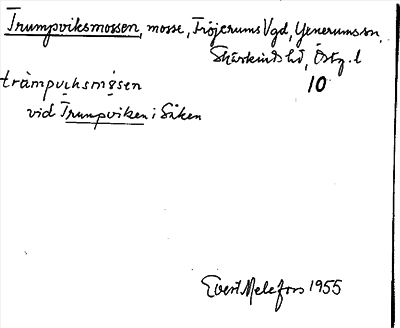 Trumpviksmossen, mosse, Fröjerums Vgd, Yxnerums sn,
Skärkinds hd, Östg. l
10
trampviksmåsen
vid Trumpviken i Såken
Evert Melefors 1955